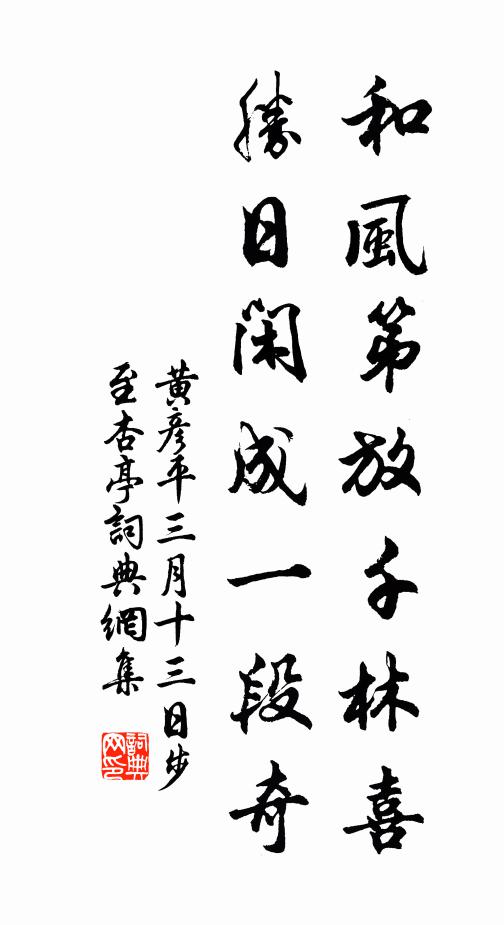 和風第放千林喜
勝日閑成一段奇
黄彦平三月十三日步
至杏亭詞典網集
詞典
网印